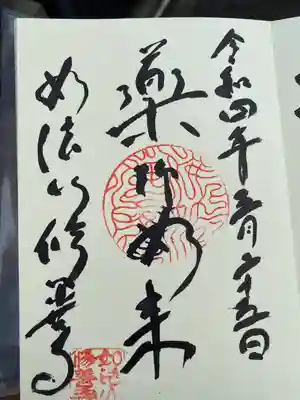 令和四年五月二十五日
藥師如来
如法山修善寺